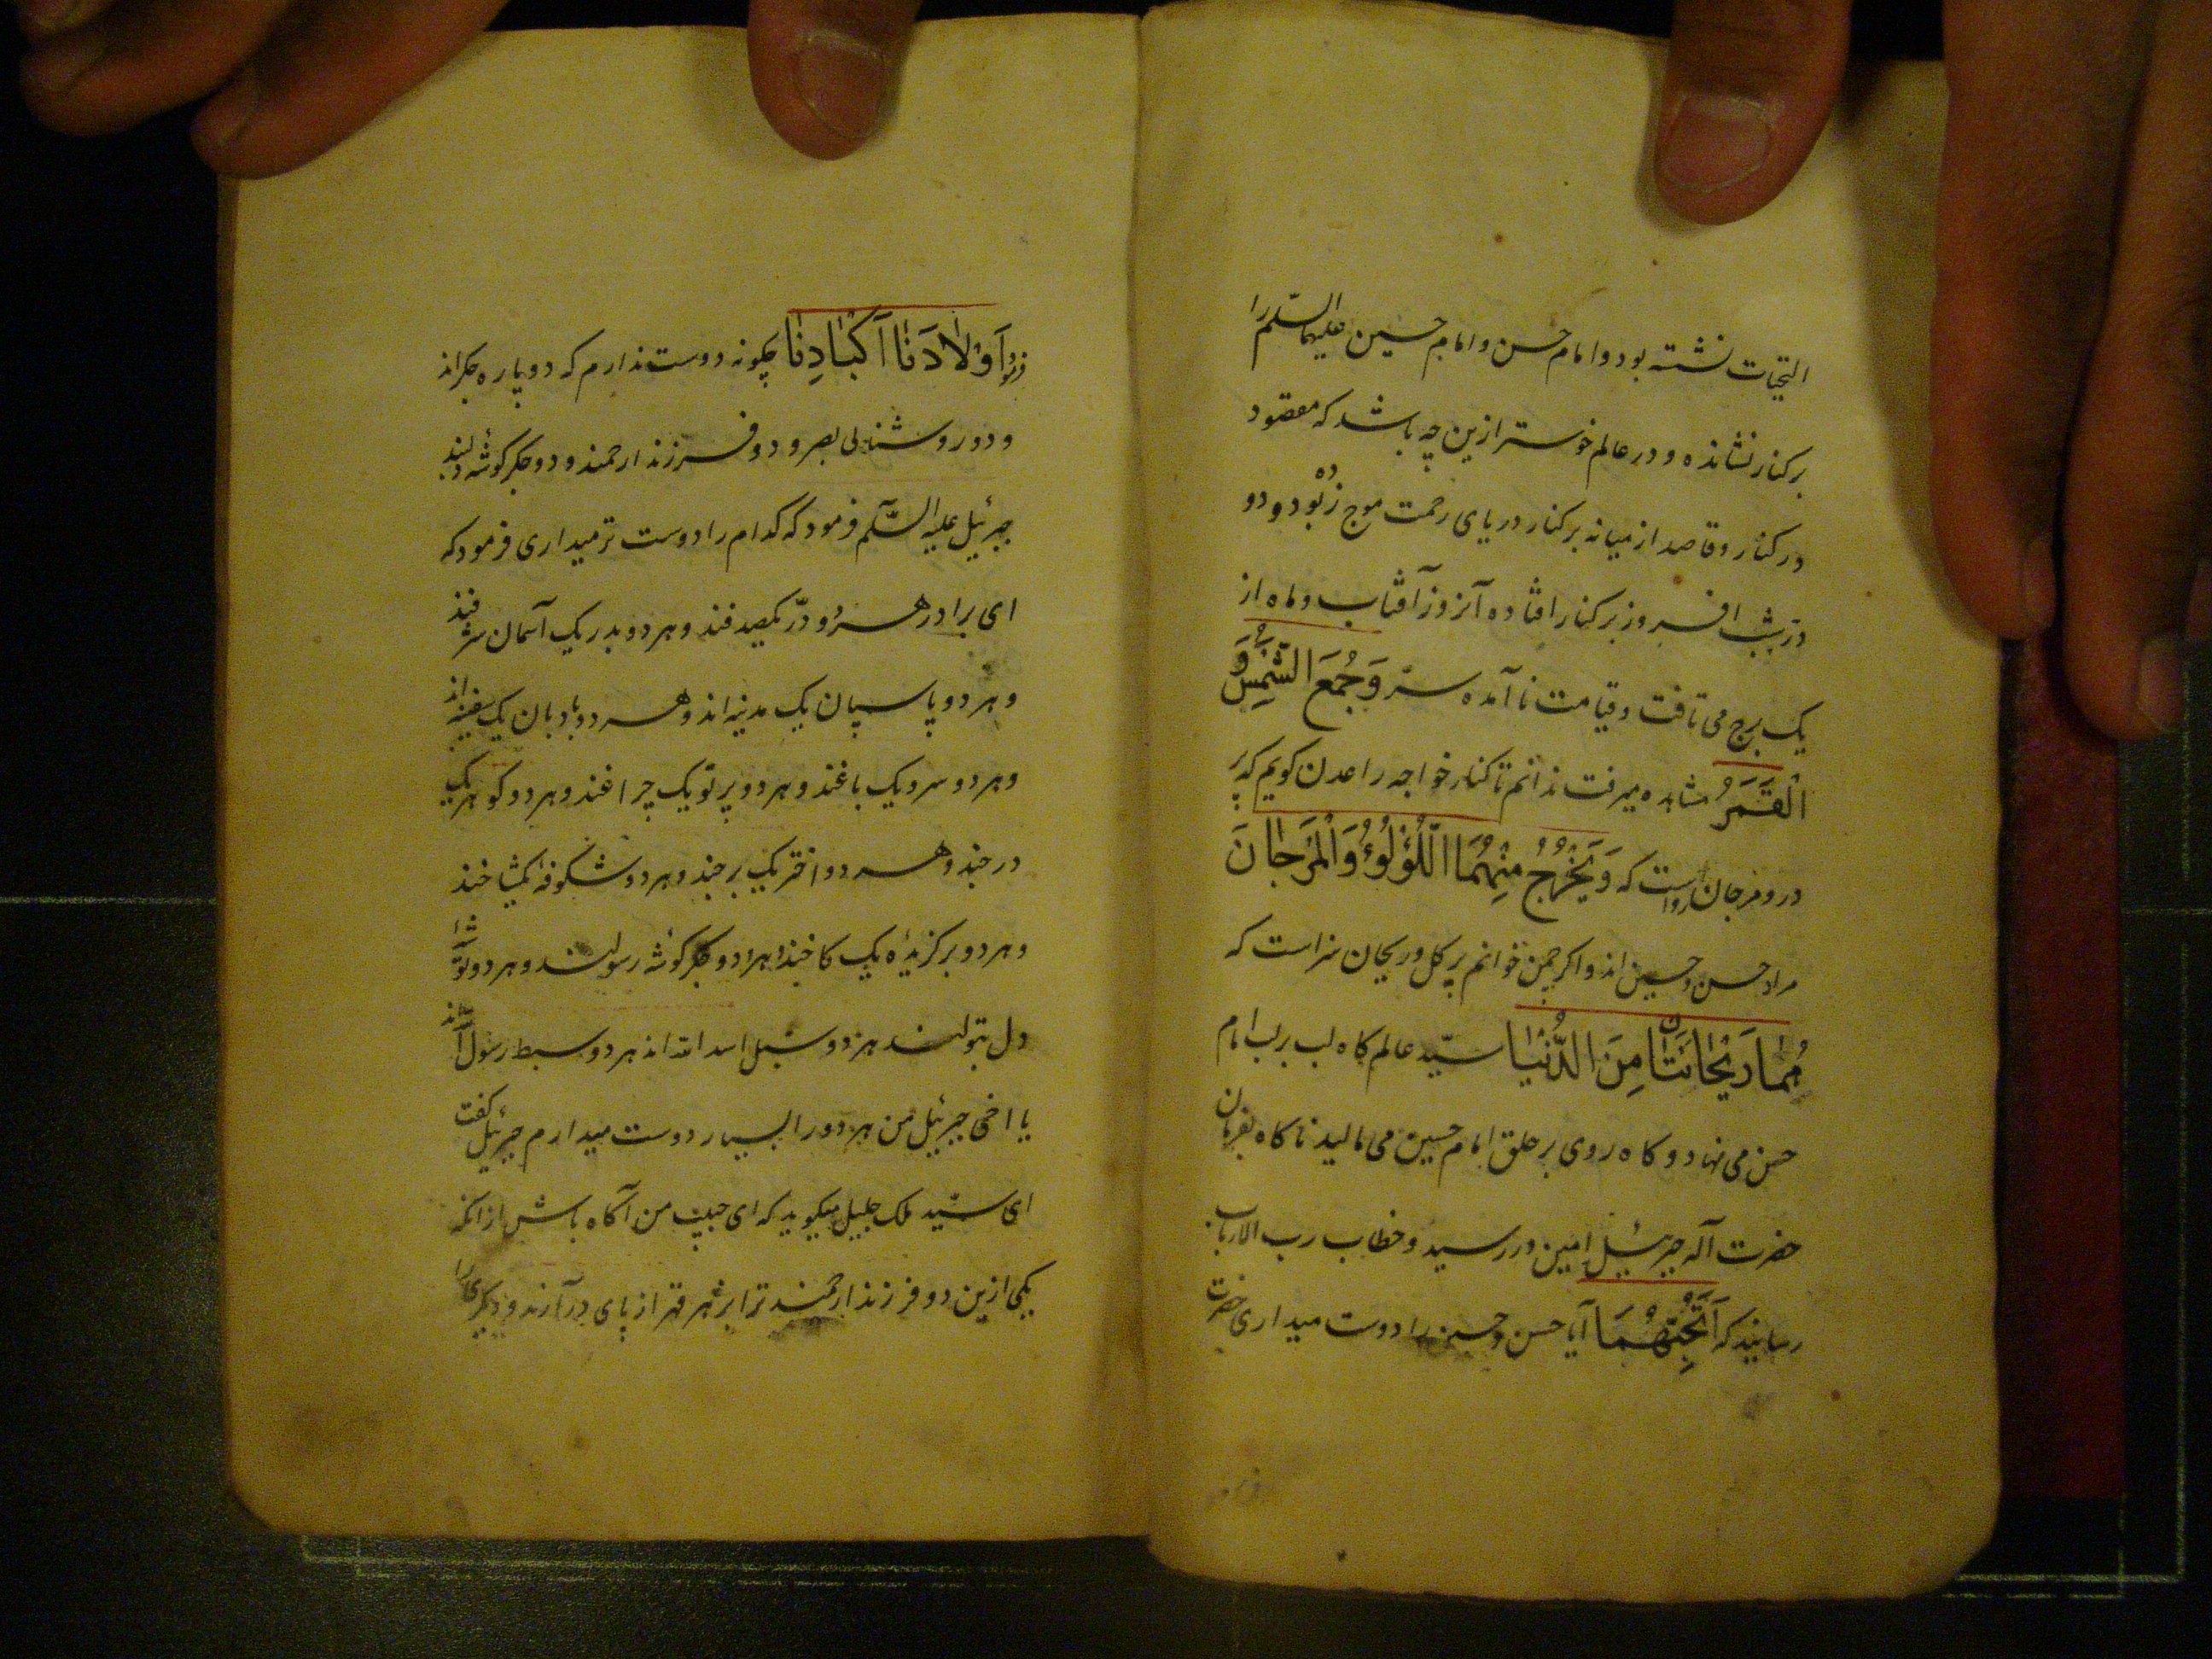 التحیات نشسته بود و امام حسن و امام حسین علیهما السلم را
بر کنار نشانده و در عالم خوستر ازین چه باشد که مقصود
در کنار و قاصد از میانه بر کنار دریای رحمت موج زده بود و دو
در شب افروز بر کنار افتاده آنروز آفتاب و ماه از
یک برج می تافت و قیامت نا آمده سرّ وَجُمَعَ الشَّمْسُ وَ
الْقَمَرُ مشاهده میرفت ندانم تا کنار خواجه را عدن کویم که پر
در و مرجان رواست که وَیَخْرُجُ مِنْهُمَا اللُّؤْلُوءُ وَالْمَرْجَانَ
مراد حسن و حسین اند و اکر چمن خوانم پر کل و ریحان سزاست که
هُمَا رَیْحَانَتَایَ مِنَ الدُّنْیَا سیّد عالم کاه لب بر لب امام
حسن می نهاد و کاه روی بر حلق امام حسین می مالید ناکاه بفرمان
حضرت آله جبرئیل امین در رسید و خطاب رب الارباب
رسانید که اَتُحِبُّهُمَا آیا حسن و حسین را دوست میداری حضرت
فرمود اَوْلَادَنَا اَکْبَادِنَا چکونه دوست ندارم که دو پاره جکر اند
و دو روشنائی بصر و دو فرزند ارجمند و دو جکر کوشهٔ دلبند
جبرئیل علیه السّلم فرمود که کدام را دوست تر میداری فرمود که
ای برادر هر دو درّ یکصدفند و هر دو بدر یک آسمان شرفند
و هر دو پاسبان یک مدینه اند و هر دو بادبان یک سفینه اند
و هر دو سرو یک باغند و هر دو پرتو یک چراغند و هر دو کوهر یک
درجند و هر دو اختر یک برجند و هر دو شکوفهٔ یکشاخند
و هر دو برکزیدهٔ یک کاخند و هر دو جکر کوشه رسولند و هر دو
دل بتولند هر دو شبل اسد الله اند هر دو سبط رسول
یا اخی جبرئیل من هر دو را بسیار دوست میدارم جبرئیل کفت
ای سیّد ملک جلیل میکوید که ای حبیب من آکاه باش از آنکه
یکی ازین دو فرزند ارجمند ترا بزهر قهر از پای در آرند و دیکری را